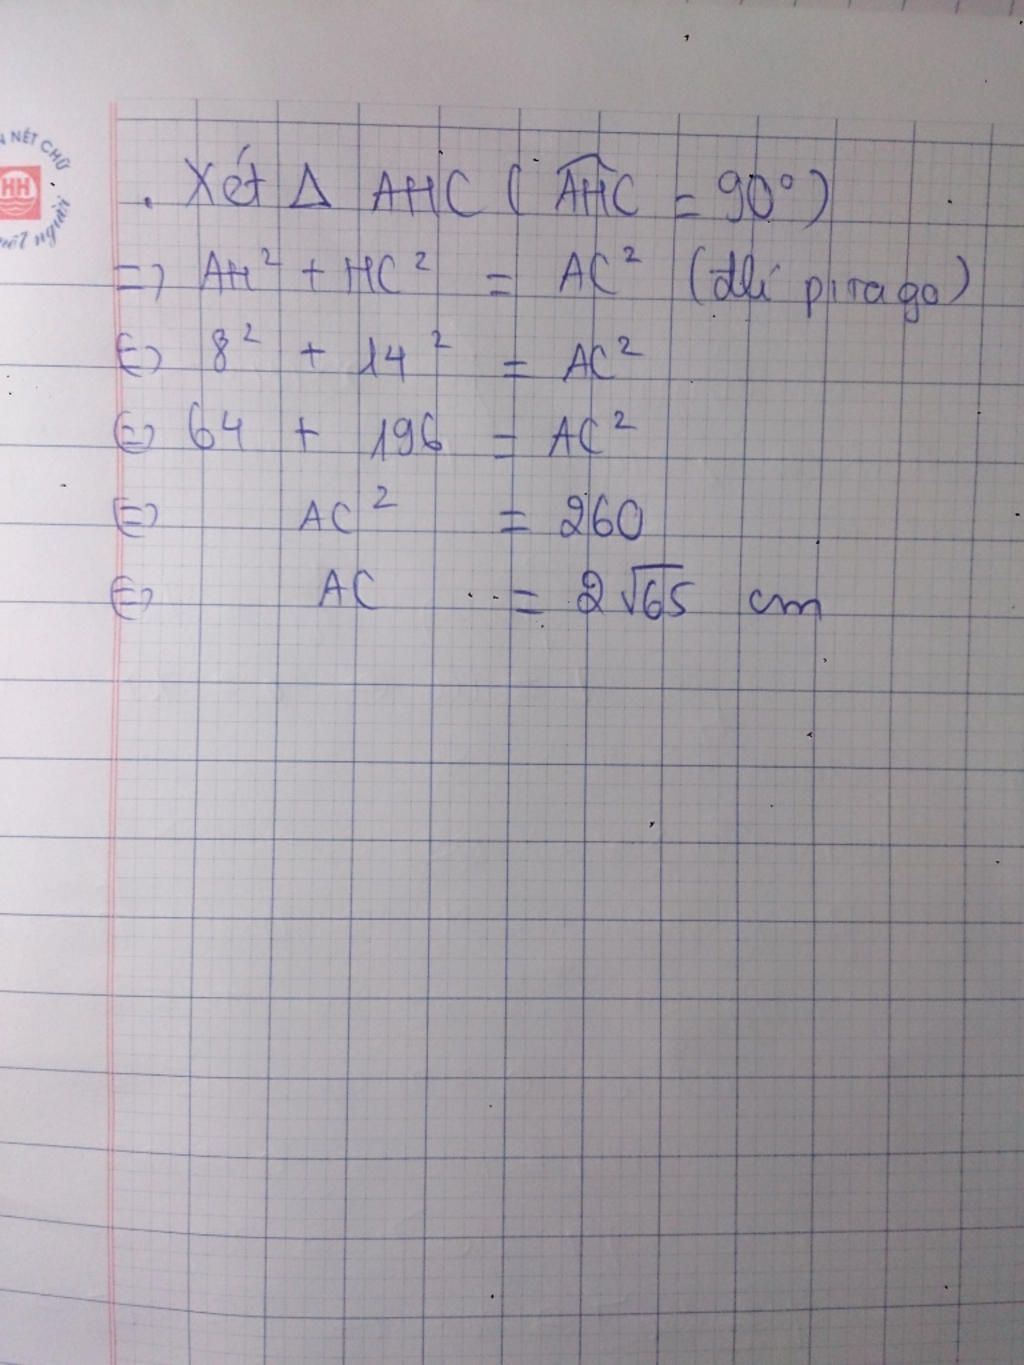 NÉT CHỮ
HH
nết người
. Xét Δ AHC ( \widehat{AHC} = 90°)
=> AH² + HC² = AC² (đlí pitago)
<=> 8² + 14² = AC²
<=> 64 + 196 = AC²
<=> AC² = 260
<=> AC = 2√65 cm